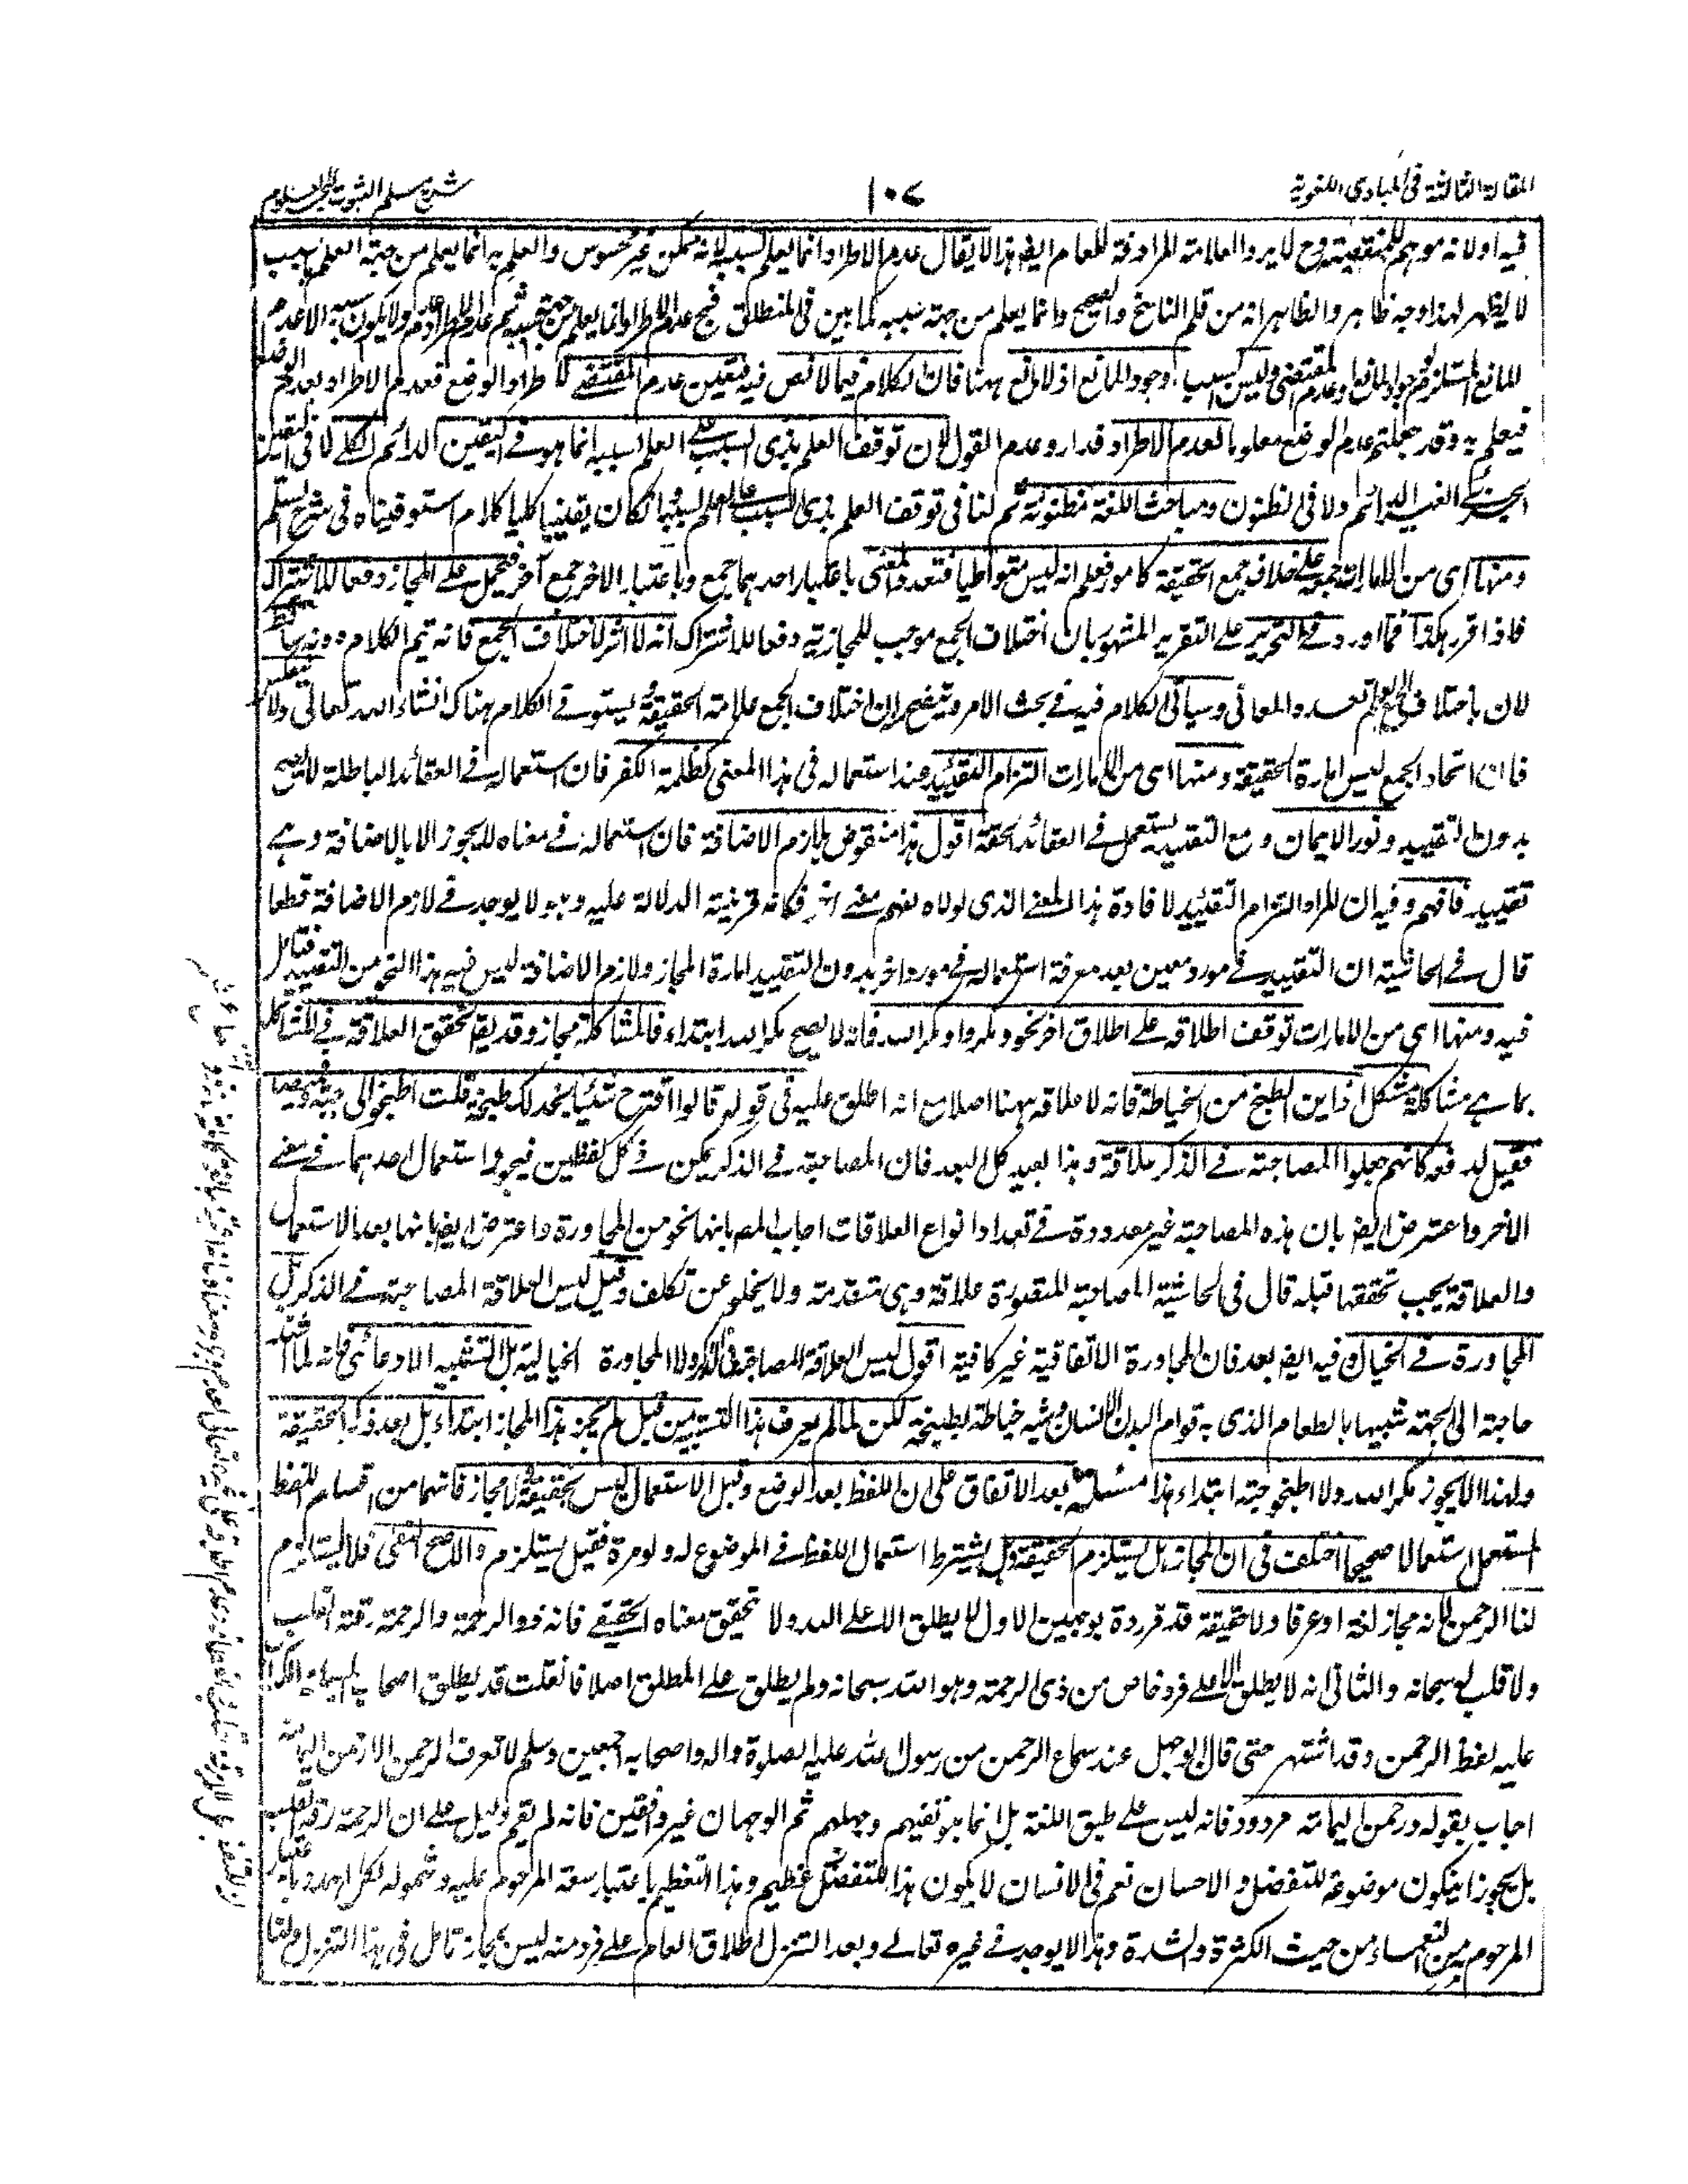 المقالة الثالثة في المبادي اللغوية
١٠٧
شرح مسلم الثبوت لبحر العلوم
فيه اولانه موهم للمنقصة وح لا يرد العلامة المرادفة للعام ايضا هذا لا يقال عدم الاطراد انما يعلم لسببه لانه ممكن غير محسوس والعلم به انما يعلم من جهة العلم بسبب
لا يظهر لهذا وجه ظاهر والظاهر انه من قلم الناسخ والصحيح وانما يعلم من جهة سببه كما بين في المنطق فح عدم الاطراد انما يعلم من جهة سببه ثم عدم الاطراد عدم ولا يكون سببه الا عدم
للمانع اذ لا مانع ههنا فان الكلام فيما لا نص فيه فتعين عدم المقتضى للاطراد الوضع فعدم الاطراد بعدم الوضع
فيعلم به وقد جعلتم عدم الوضع معلوما لعدم الاطراد فدار وعدم القول لان توقف العلم بذى السبب على العلم بسببه انما هو في اليقين الدائم الكلي لا في اليقين
الجزئي الغير الدائم ولا في الظنون ومباحث اللغة مظنونة ثم لنا في توقف العلم بذى السبب على العلم بالسبب وان كان يقينيا كليا كلام استوفيناه في شرح السلم
ومنها اى من الامارات جمعه على خلاف جمع الحقيقة كامور فعلم انه ليس متواطيا فتعدد المعنى باعتبار احدهما جمع وباعتبار الاخر جمع آخر فيحمل على المجاز دفعا للاشتراك
فاذا قرر هكذا فما اورد في التحرير على التقرير المشهور بان اختلاف الجمع موجب للمجازية دفعا للاشتراك انه لا اثر لاختلاف الجمع فانه يتم الكلام دونه ساقط
لان باختلاف الجمع يعلم تعدد المعاني وسيأتي الكلام فيه في بحث الامر ويتضح ان اختلاف الجمع علامة الحقيقة ويستوفي الكلام هناك انشاء الله تعالى ولا ينعكس
فان اتحاد الجمع ليس امارة الحقيقة ومنها اى من الامارات التزام التقييد عند استعماله في هذا المعنى كظلمة الكفر فان استعماله في العقائد الباطلة لا يصح
بدون التقييد ونور الايمان ومع التقييد يستعمل في العقائد الحقة اقول هذا منقوض بلازم الاضافة فان استعماله في معناه لا يجوز الا بالاضافة وهي
تقييد فافهم وفيه ان المراد التزام التقييد لافادة هذا المعنى الذى لولاه لفهم معنى اخر فكانه قرينة الدلالة عليه وهو لا يوجد في لازم الاضافة قطعا
قال في الحاشية ان التقييد في مورد معين بعد معرفة استعماله في مورد اخر بدون التقييد امارة المجاز ولازم الاضافة ليس فيه هذا النحو من التقييد فتأمل
فيه ومنها اى من الامارات توقف اطلاقه على اطلاق اخر نحو ومكروا ومكر الله فانه لا يصح مكر الله ابتداء فالمشاكلة مجاز وقد يقال تحقق العلاقة في المشاكلة
بما هي مشاكلة مشكل اذ اين الطبخ من الخياطة فانه لا علاقة ههنا اصلا مع انه اطلق عليه في قوله قالوا اقترح شيئا نجد لك طبخه قلت اطبخوا لي جبة وقميصا
فقيل له فو كانهم جعلوا المصاحبة في الذكر علاقة وهذا بعيد كل البعد فان المصاحبة في الذكر يمكن في كل لفظين فيجوز استعمال احدهما في معنى
الاخر واعترض ايضا بان هذه المصاحبة غير معدودة في تعداد انواع العلاقات اجاب المص بانها نحو من المجاورة واعترض ايضا بانها بعد الاستعمال
والعلاقة يجب تحققها قبله قال في الحاشية المصاحبة المتصورة علاقة وهي متقدمة ولا يخلو عن تكلف وقيل ليس العلاقة المصاحبة في الذكر بل
المجاورة في الخيال وفيه ايضا بعد فان المجاورة الاتفاقية غير كافية اقول ليس العلاقة المصاحبة في الذكر ولا المجاورة الخيالية بل التشبيه الادعائي فانه لما اشتد
حاجة الى الجبة شبيها بالطعام الذى به قوام البدن الانسان وشبه خياطته بطبخه لكن لما لم يعرف هذا التشبيه من قبل لم يجز هذا المجاز ابتداء بل بعد ذكر الحقيقة
ولهذا لا يجوز مكر الله ولا اطبخوا جبة ابتداء هذا مسئلة بعد الاتفاق على ان اللفظ بعد الوضع وقبل الاستعمال ليس بحقيقة ولا مجاز فانهما من اقسام اللفظ
المستعمل استعمالا صحيحا اختلف في ان المجاز هل يستلزم الحقيقة وهل يشترط استعمال اللفظ في الموضوع له ولو مرة فقيل يستلزم والاصح النفى فلا يستلزم
لنا الرحمن لانه مجاز لغة او عرفا ولا حقيقة قد قرروه بوجهين الاول لا يطلق الا على الله ولا تحقق معناه الحقيقي فانه ذو الرحمة والرحمة رقة القلب
ولا قلب له سبحانه والثاني انه لا يطلق الا على فرد خاص من ذى الرحمة وهو الله سبحانه ولم يطلق على المطلق اصلا فان قلت قد يطلق اصحاب مسيلمة الكذاب
عليه لفظ الرحمن وقد اشتهر حتى قال ابو جهل عند سماع الرحمن من رسول الله عليه الصلوة واله واصحابه اجمعين وسلم لا نعرف الرحمن الا رحمن اليمامة
اجاب بقوله ورحمن اليمامة مردود فانه ليس على طبق اللغة بل انما هو تعنتهم وجهلهم ثم الوجهان غير وافيين فانه لم يقم دليل على ان الرحمة رقة القلب
بل يجوز ان يكون موضوعة للتفضل والاحسان نعم في الانسان لا يكون هذا التفضل عظيم وهذا التعظيم باعتبار سعة المرحوم عليه وشموله لكل احد وباعتبار
المرحوم به من النعماء من حيث الكثرة والشدة وهذا لا يوجد في غيره تعالى وبعد التنزل اطلاق العام على فرد منه ليس بمجاز تامل في هذا التنزل ولنا